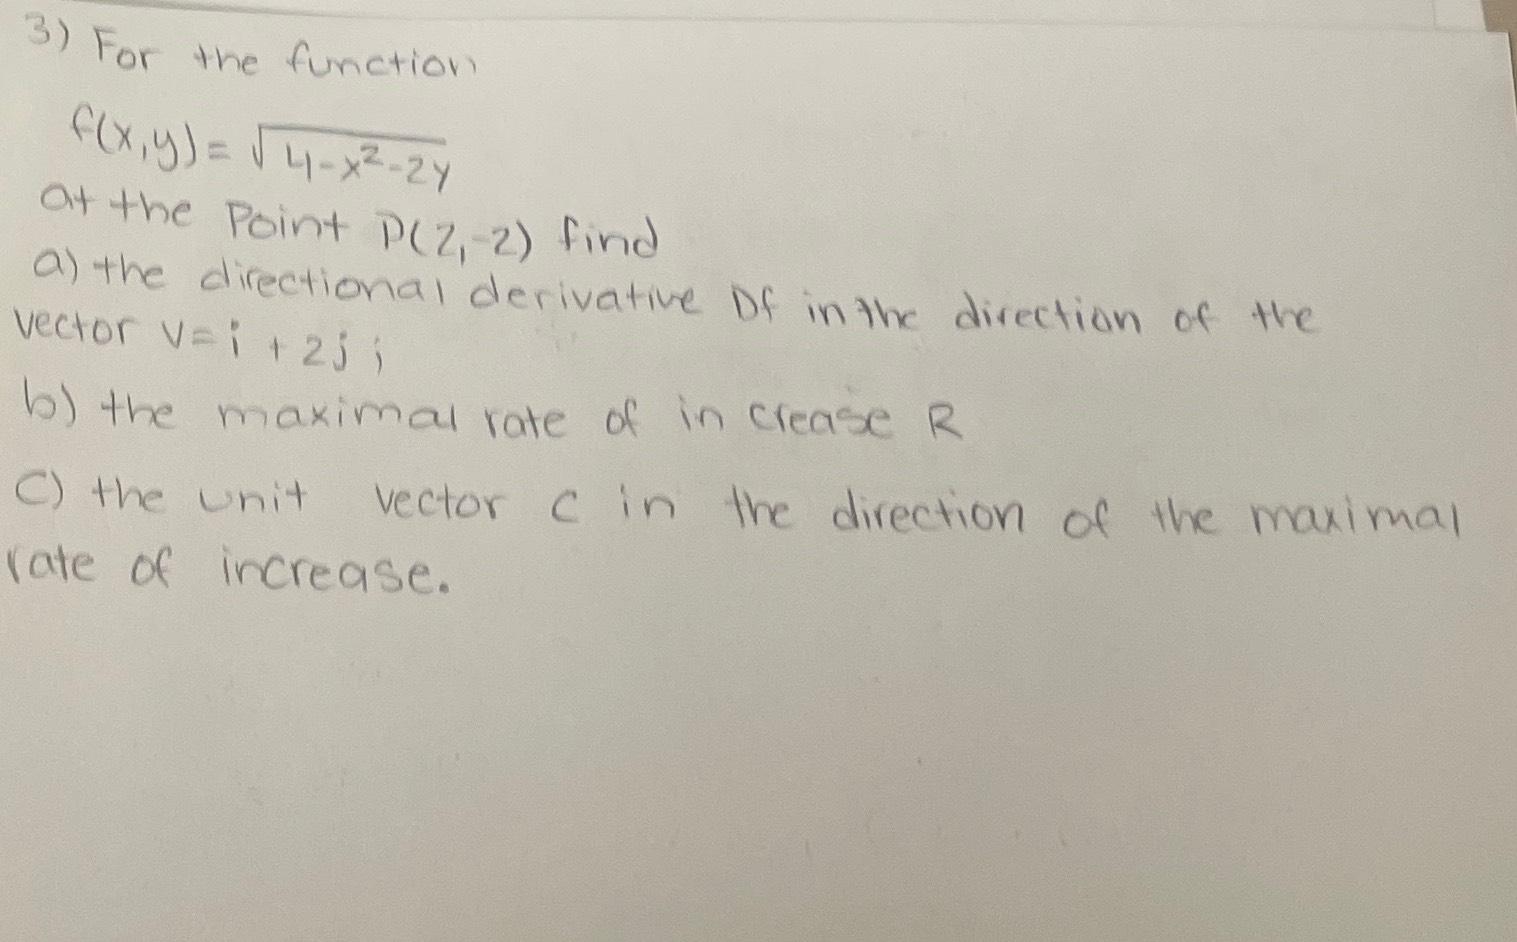 3) For the function
f(x,y)= √4-x²-2y
at the Point P(2,-2) find
a) the directional derivative Df in the direction of the
vector v=i + 2j ;
b) the maximal rate of in crease R
c) the unit vector c in the direction of the maximal
rate of increase.